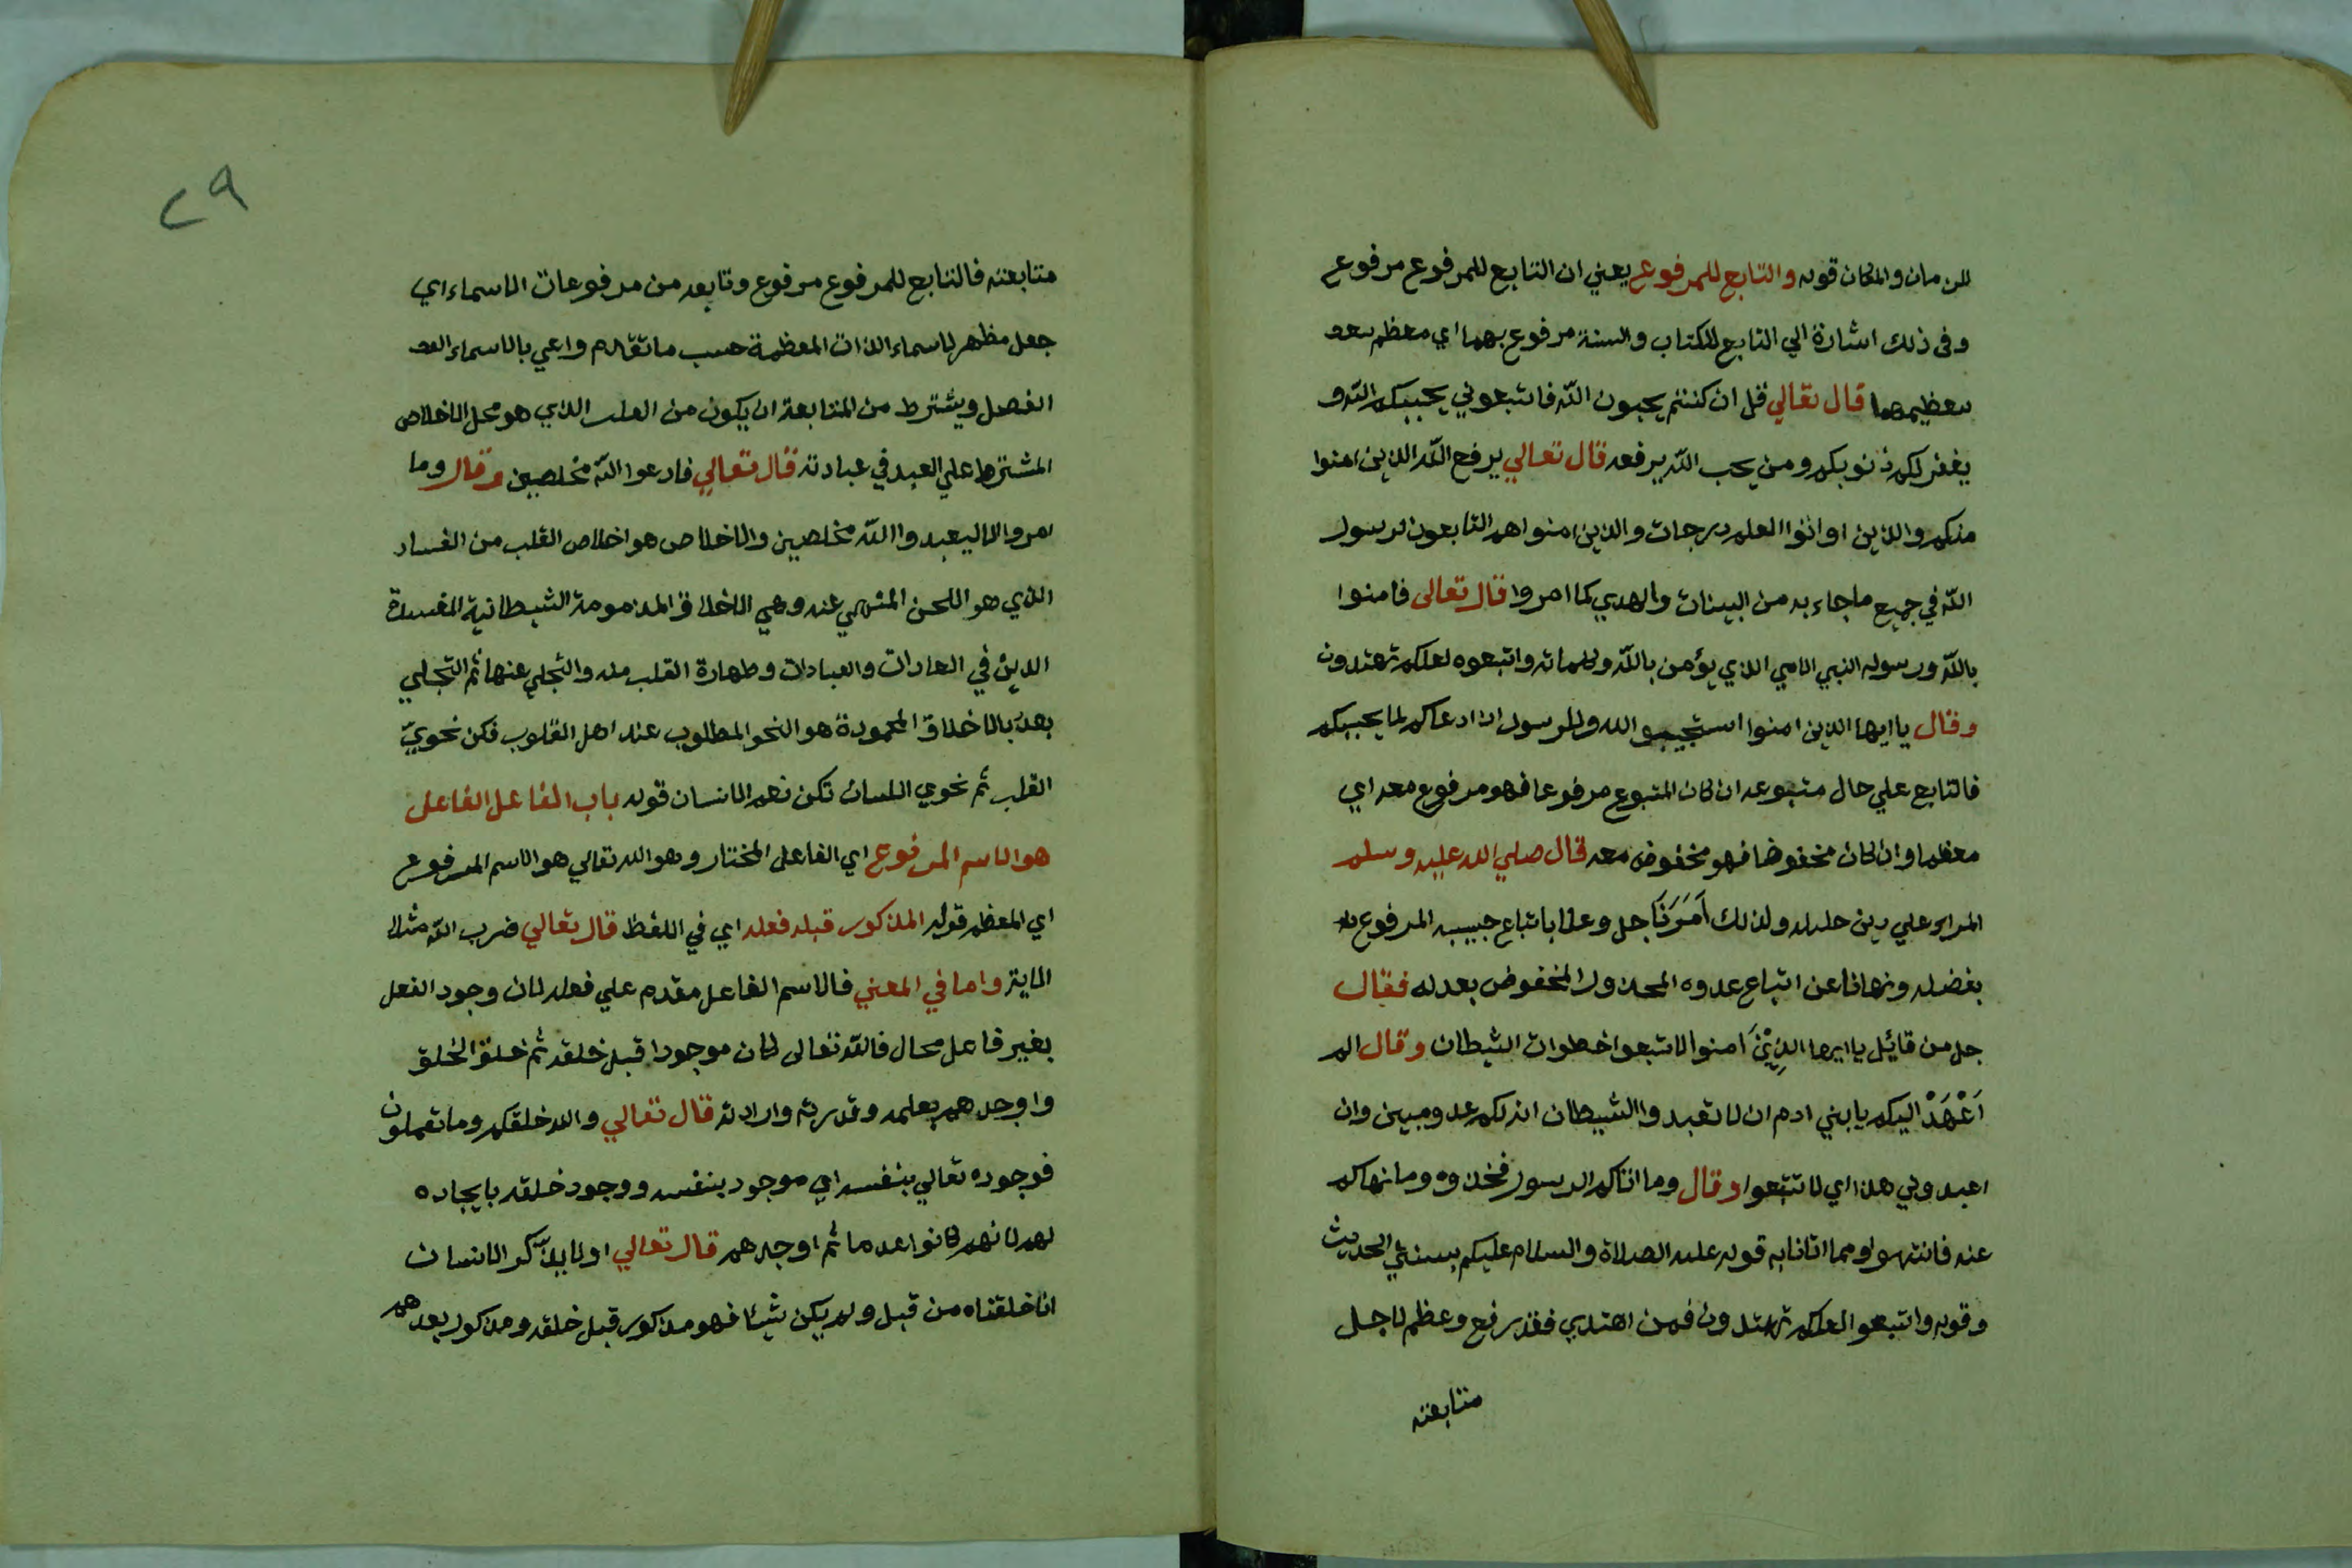 للزمان والمكان قوله والتابع للمرفوع يعني ان التابع للمرفوع مرفوع
وفى ذلك اشارة الي التابع للكتاب والسنة مرفوع بهما اي معظم بعد
تعظيمهما قال تعالي قل ان كنتم تحبون الله فاتبعوني يحببكم الله و
يغفر لكم ذنوبكم ومن يحب الله يرفعه قال تعالي يرفع الله الذين امنوا
منكم والذين اوتوا العلم درجات والذين امنوا هم التابعون لرسول
الله في جميع ما جاء به من البينات والهدي كما امروا قال تعالى فامنوا
بالله ورسوله النبي الامي الذي يؤمن بالله وكلماته واتبعوه لعلكم تهتدون
وقال يا ايها الذين امنوا استجيبو الله وللرسول اذا دعاكم لما يحييكم
فالتابع علي حال متبوعه ان كان المتبوع مرفوعا فهو مرفوع معه اي
معظم وان كان مخفوضا فهو مخفوض معه قال صلي الله عليه وسلم
المرء علي دين خليله ولذلك اَمَرَنَا جل وعلا باتباع حبيبه المرفوع له
بفضله ونهانا عن اتباع عدوه المخذول المخفوض بعدله فقال
جل من قائل يا ايها الذِيْنَ امنوا لا تتبعوا خطوات الشيطان وقال الم
اَعْهَدْ اليكم يا بني ادم ان لا تعبدوا الشيطان انه لكم عدو مبين وان
اعبدوني هذا اي لا تتبعوا وقال وما اتاكم الرسول فخذوه وما نهاكم
عنه فانتهوا ومما اتانا به قوله عليه الصلاة والسلام عليكم بسنتي الحديث
وقوله واتبعوا لعلكم تهتدون فمن اهتدي فقد رفع وعظم لاجل
متابعته
٢٩
متابعته فالتابع للمرفوع مرفوع وتابعه من مرفوعات الاسماء اي
جعل مظهر لاسماء الذات المعظمة حسب ما تقدم واعي بالاسماء
الفصل ويشترط من المتابعة ان يكون من القلب الذي هو محل الاخلاص
المشترط علي العبد في عبادته قال تعالي فادعوا الله مخلصين وقال وما
امروا الا ليعبدوا الله مخلصين والاخلاص هو اخلاص القلب من الفساد
الذي هو اللحن المنهي عنه وهي الاخلاق المذمومة الشيطانية المفسدة
الدين في العادات والعبادات وطهارة القلب منه والتخلي عنها ثم التجلي
بعد بالاخلاق المحمودة هو النحو المطلوب عند اهل القلوب فكن نحويّ
القلب ثم نحوي اللسان تكن نعم الانسان قوله باب الفاعل الفاعل
هو الاسم المرفوع اي الفاعل المختار وهو الله تعالي هو الاسم المرفوع
اي المعظم قوله المذكور قبله فعله اي في اللفظ قال تعالي ضرب الله مثلا
الاية واما في المعني فالاسم الفاعل مقدم علي فعله لان وجود الفعل
بغير فاعل محال فالله تعالى كان موجودا قبل خلقه ثم خلق الخلق
واوجدهم بعلمه وقدرته وارادته قال تعالي والله خلقكم وما تعملون
فوجوده تعالي بنفسه اي موجود بنفسه ووجود خلقه بايجاده
لهم لانهم كانوا عدما ثم اوجدهم قال تعالي اولا يذّكر الانسان
انا خلقناه من قبل ولم يكن شيئا فهو مذكور قبل خلقه ومذكور بعدهم